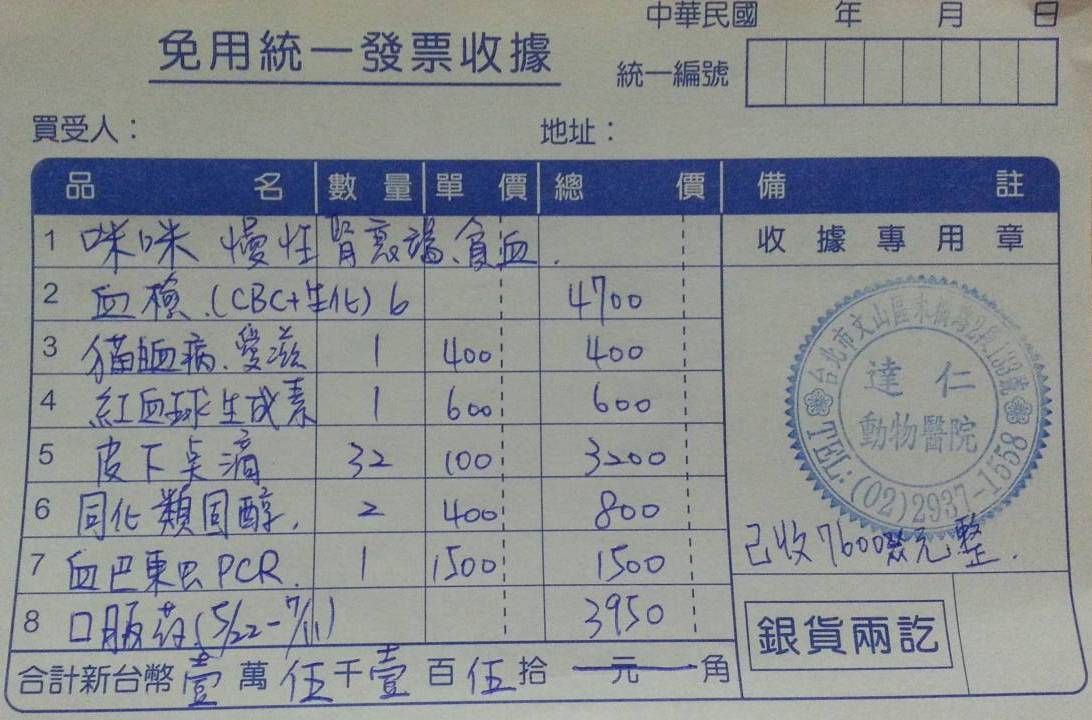 中華民國 年 月 日
免用統一發票收據
統一編號
買受人： 地址：
品名 數量 單價 總價 備註
1 咪咪 慢性腎衰竭、貧血. 收據專用章
2 血檢.(CBC+生化) 6 4700
3 貓血病.愛滋 1 400 400
4 紅血球生成素 1 600 600
5 皮下点滴 32 100 3200
6 同化類固醇. 2 400 800
7 血巴東虫 PCR. 1 1500 1500
8 口服药(5/22-7/11) 3950
台北市文山區木柵路2段133號
達仁
動物醫院
TEL:(02)2937-1558
已收7600元整.
銀貨兩訖
合計新台幣壹萬伍千壹百伍拾元角